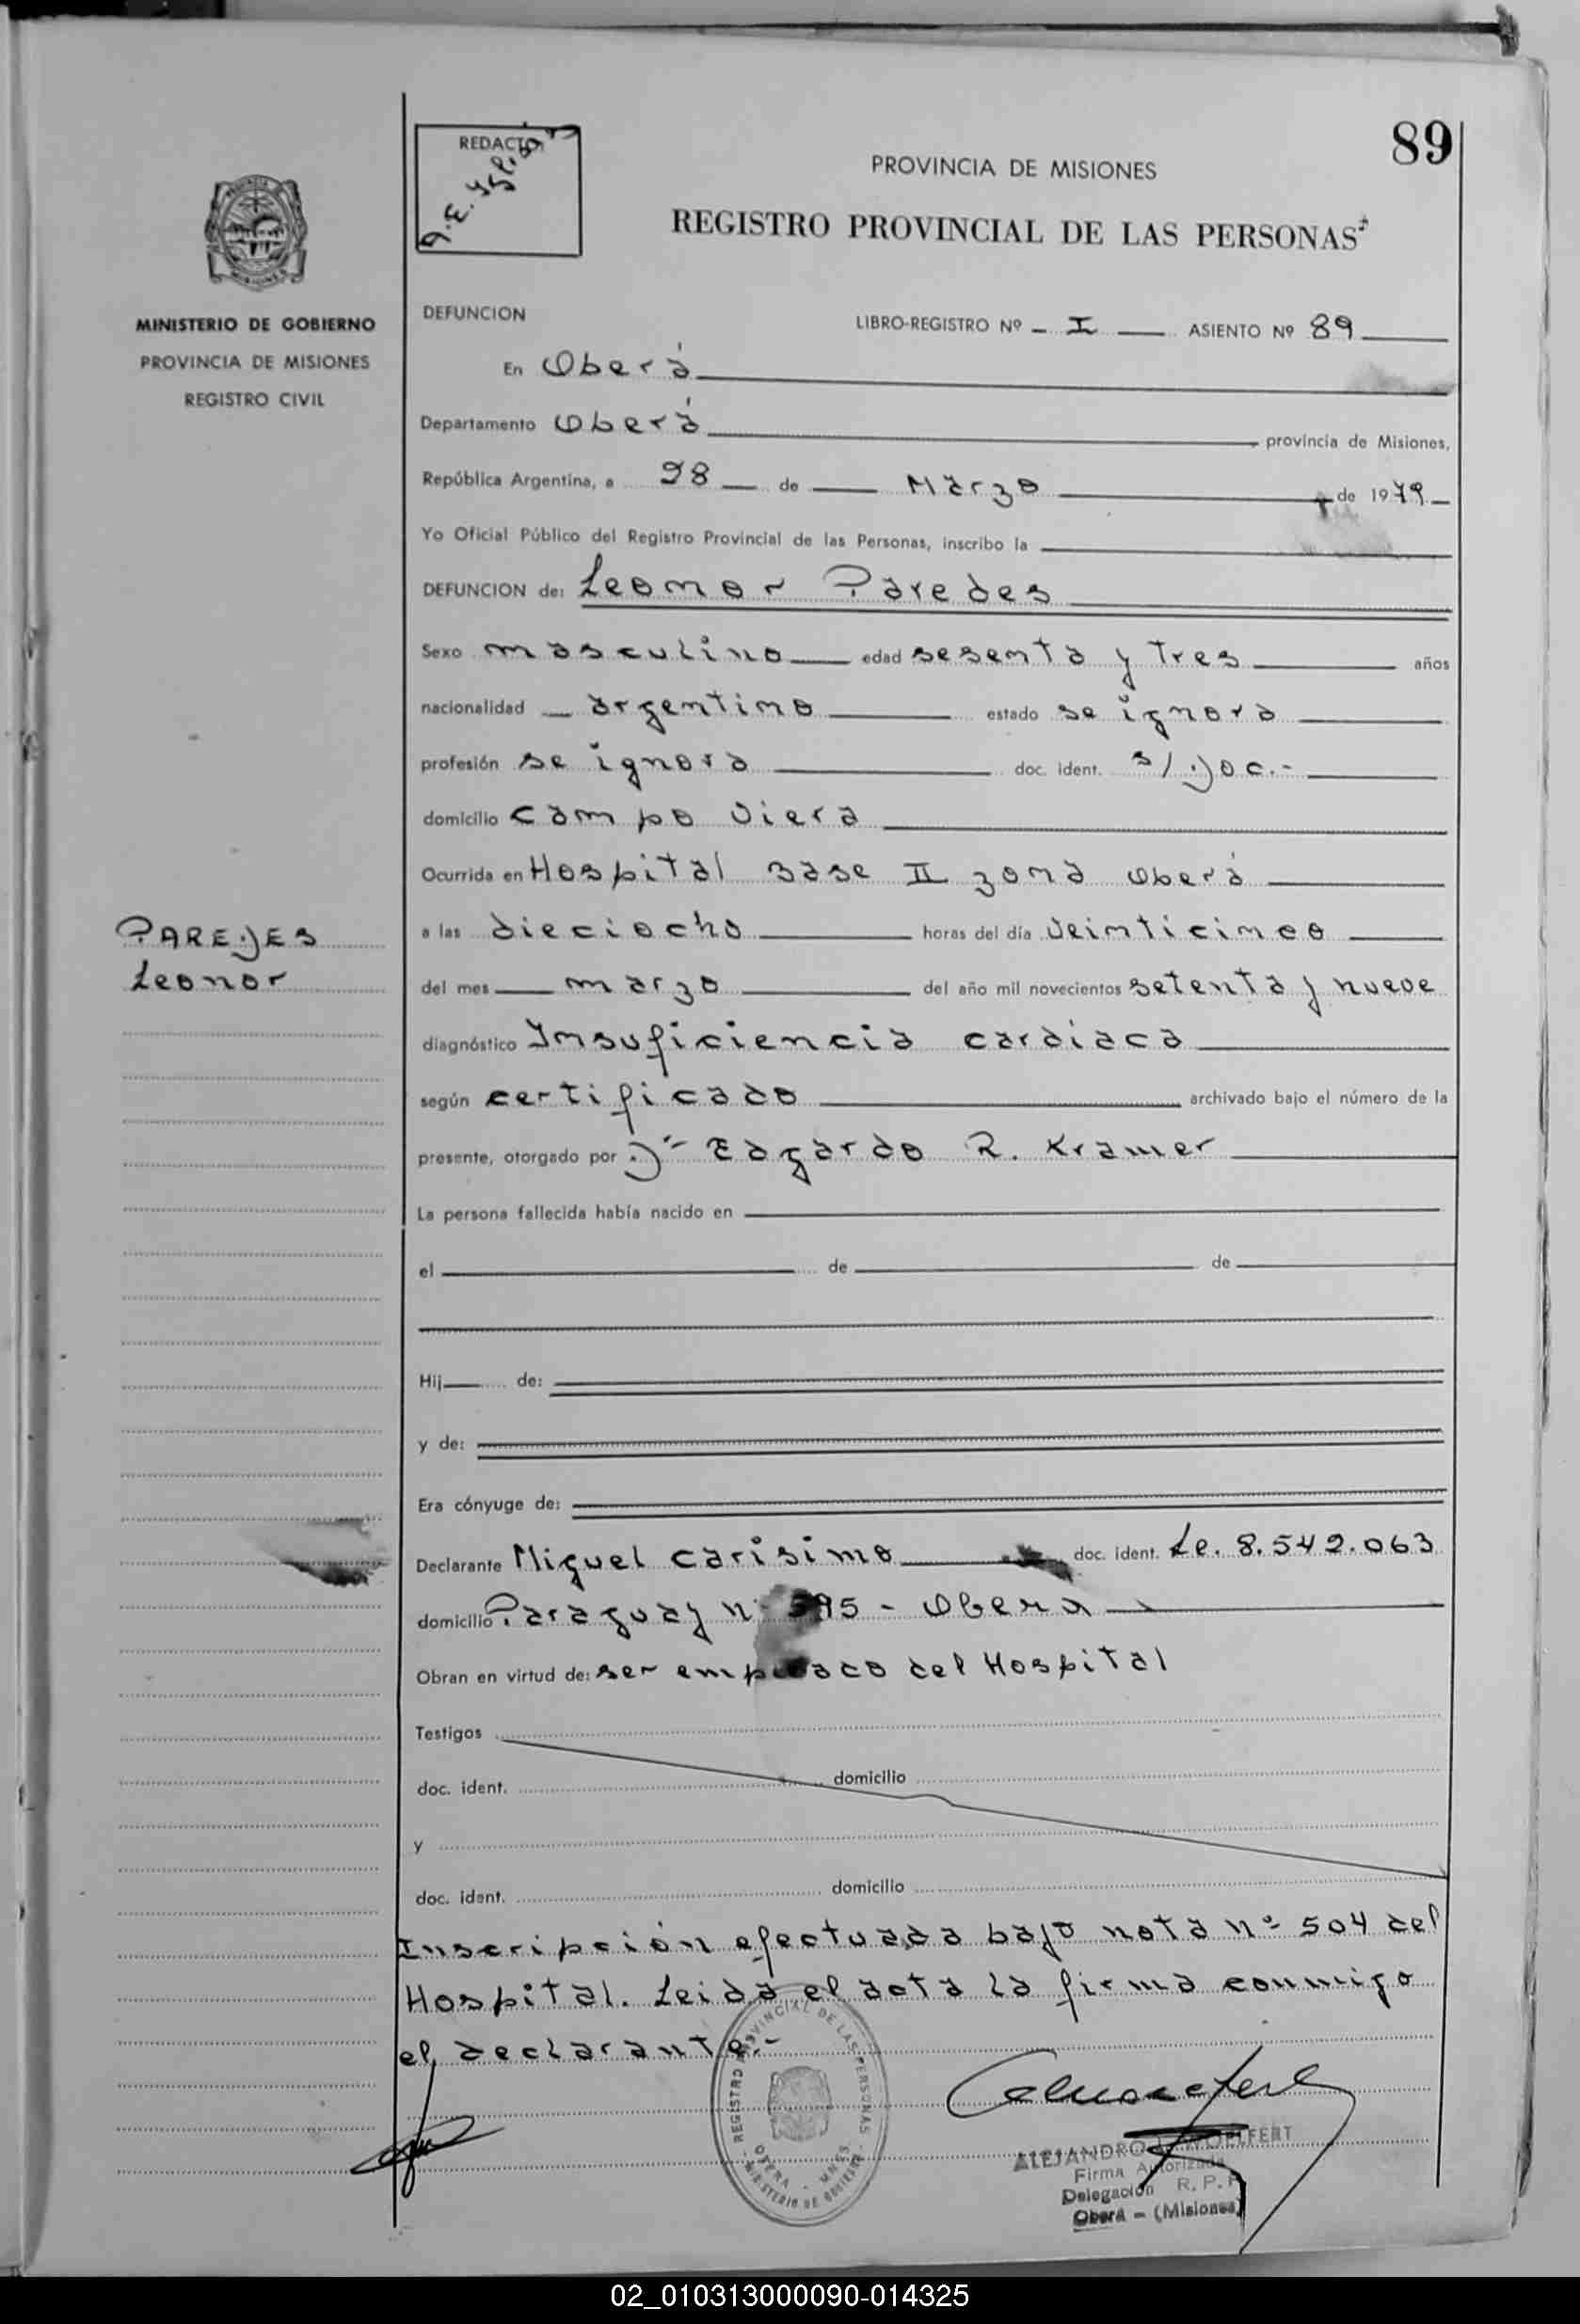 89
REDACTÓ:
PROVINCIA DE MISIONES
REGISTRO PROVINCIAL DE LAS PERSONAS
MINISTERIO DE GOBIERNO
PROVINCIA DE MISIONES
REGISTRO CIVIL
DEFUNCION
LIBRO-REGISTRO Nº I ASIENTO Nº 89
En Oberá
Departamento Oberá provincia de Misiones,
República Argentina, a 28 de Marzo de 1979
Yo Oficial Público del Registro Provincial de las Personas, inscribo la
DEFUNCION de: Leonor Paredes
Sexo masculino edad sesenta y tres años
nacionalidad argentino estado se ignora
profesión se ignora doc. ident. s/ Doc.-
domicilio Campo Viera
Ocurrida en Hospital Base II zona Oberá
PAREDES
Leonor
a las dieciocho horas del día veinticinco
del mes marzo del año mil novecientos setenta y nueve
diagnóstico Insuficiencia cardíaca
según certificado archivado bajo el número de la
presente, otorgado por Dr Edgardo R. Kramer
La persona fallecida había nacido en
el de de
Hij de:
y de:
Era cónyuge de:
Declarante Miguel Carisimo doc. ident. Le. 8.542.063
domicilio Paraguay nº 595 - Oberá
Obran en virtud de: ser empleado del Hospital
Testigos
doc. ident. domicilio
y
doc. ident. domicilio
Inscripción efectuada bajo nota nº 504 del
Hospital. Leida el acta la firma conmigo
el declarante.-
REGISTRO PROVINCIAL DE LAS PERSONAS
OBERA - MNES.
MINISTERIO DE GOBIERNO
ALEJANDRO WOELFERT
Firma Autorizada
Delegación R. P. P.
Oberá - (Misiones)
02_010313000090-014325